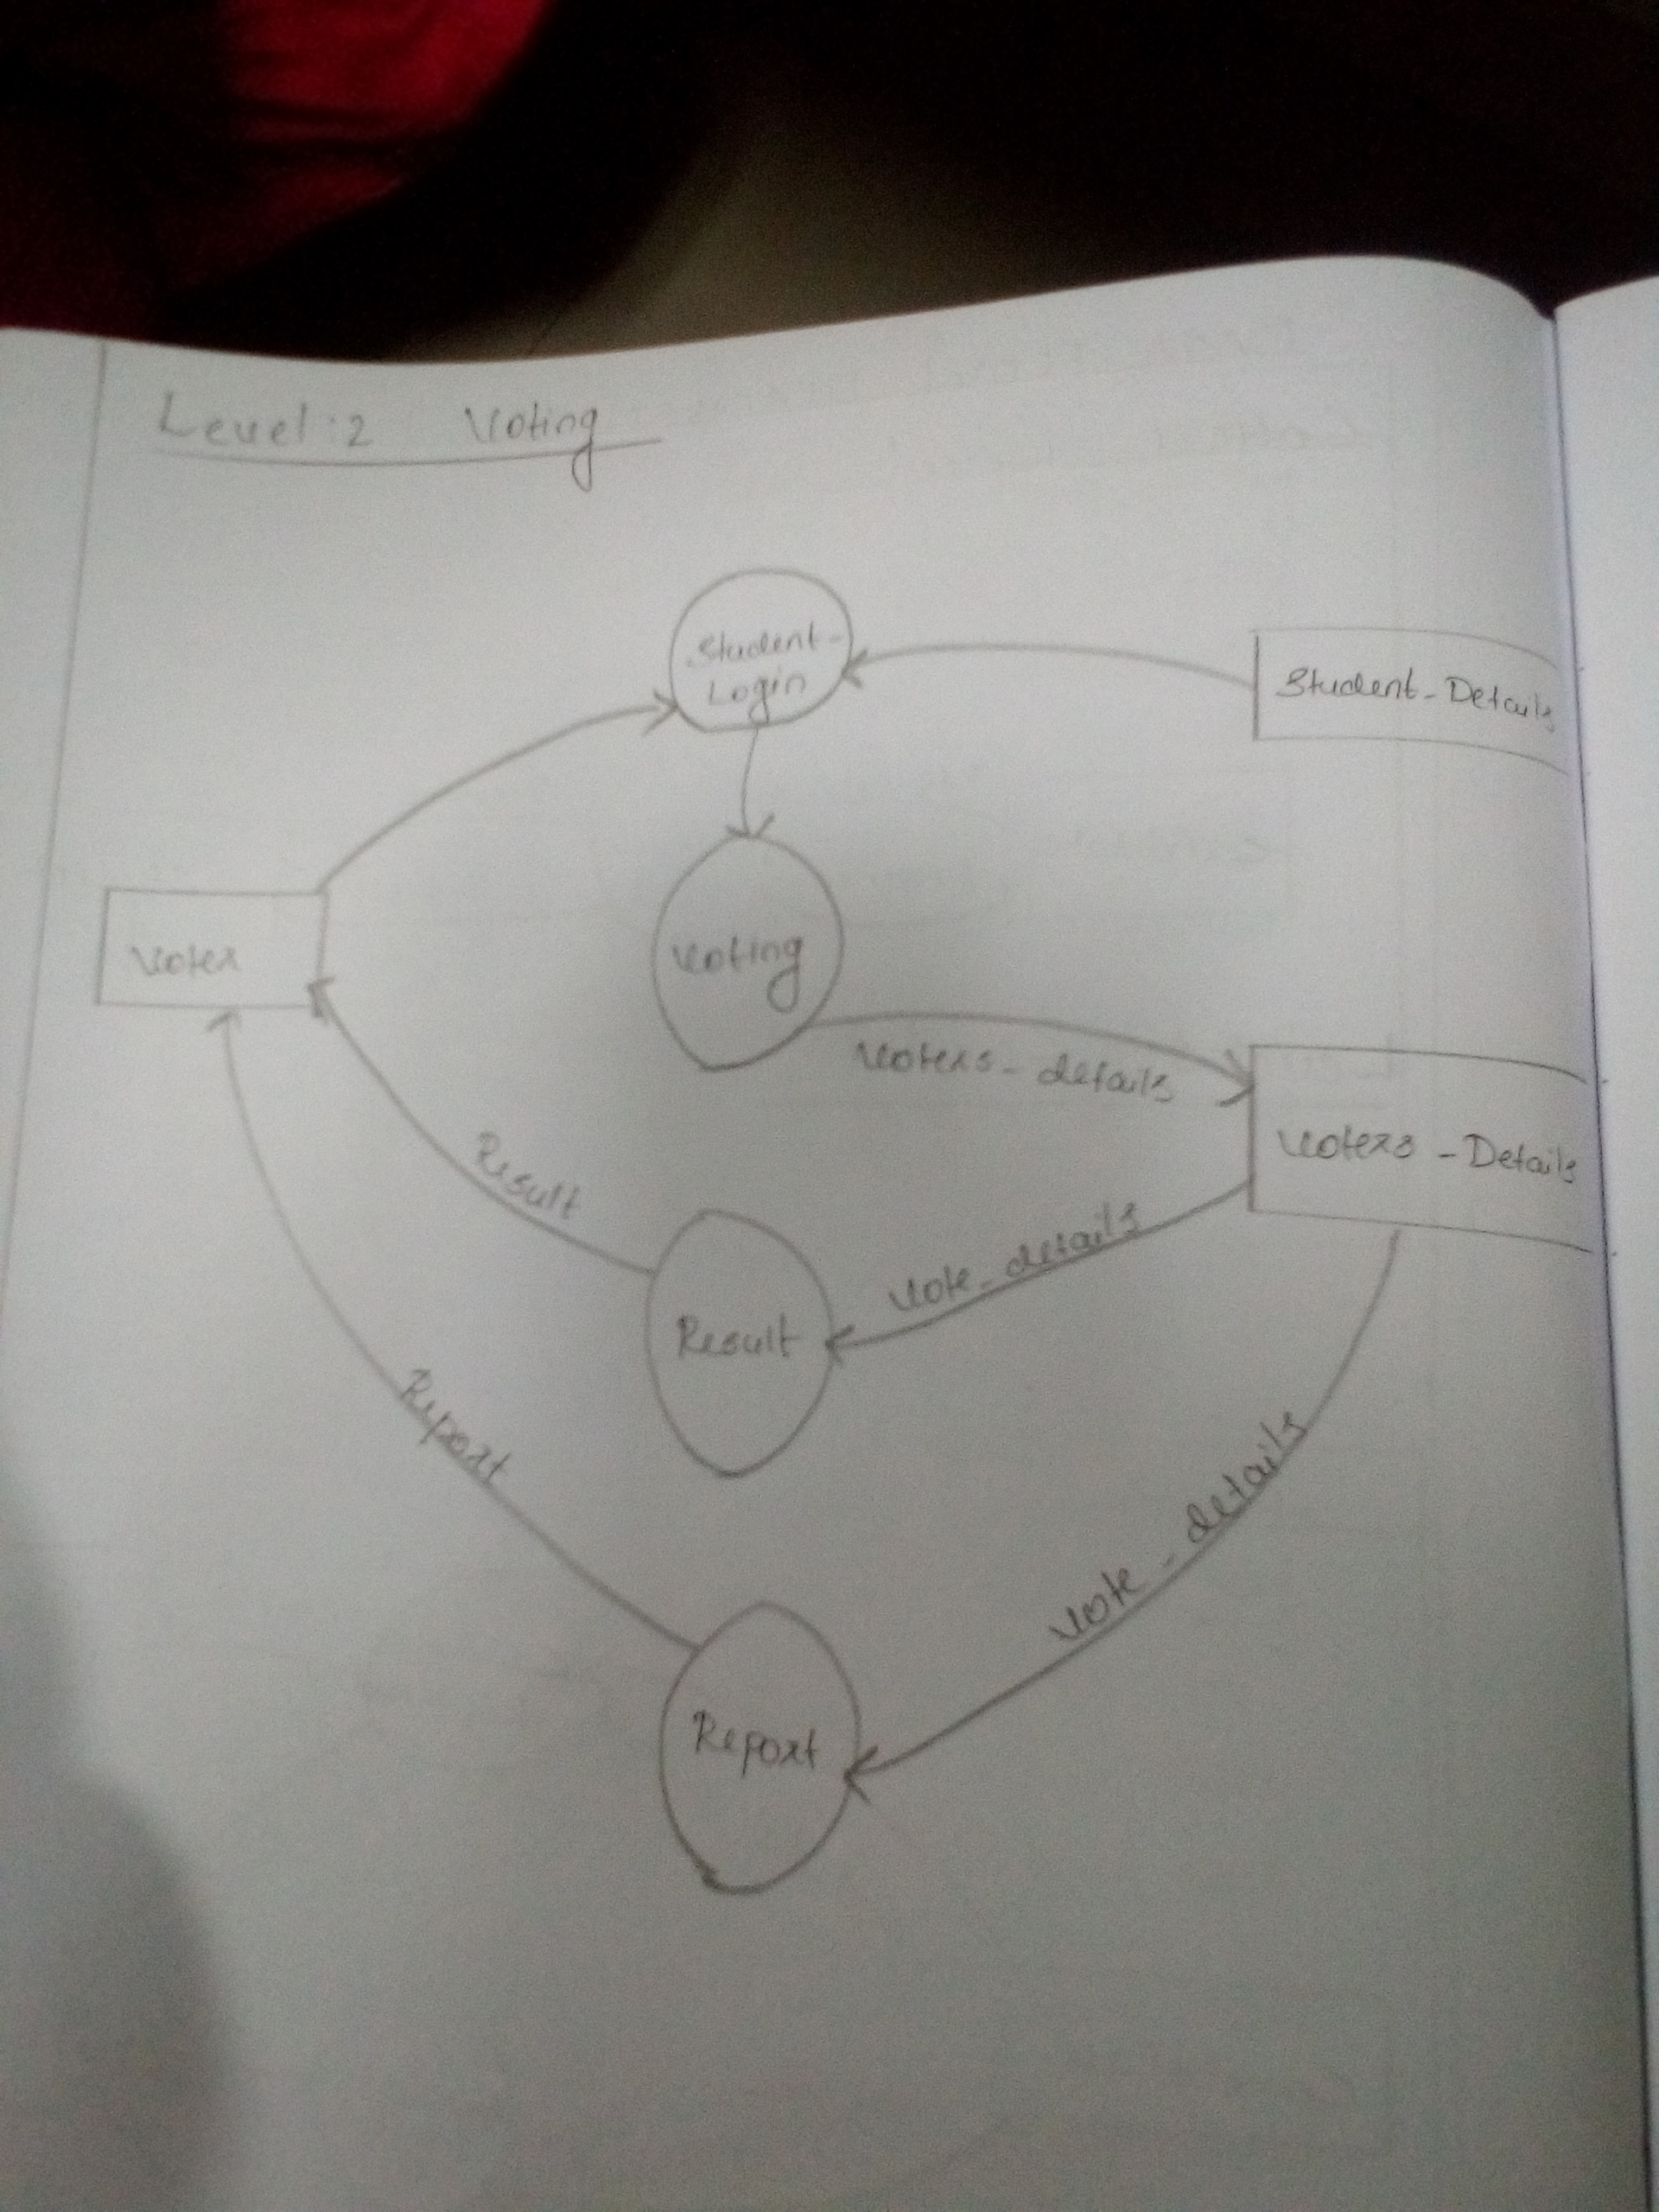 Level:2 Voting
Student-
Login
Student-Details
Voter
Voting
Voters-details
Voters-Details
Result
Vote-details
Result
Report
Vote-details
Report